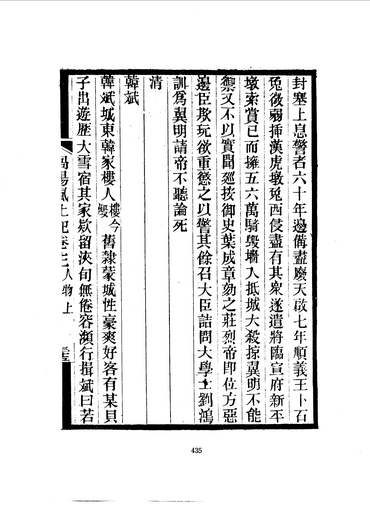 封塞上息警者六十年邊備盡廢天啟七年順義王卜石
兔微弱揷漢虎墩兔西侵盡有其衆遂遣將臨宣府新平
墩索賞已而擁五六萬騎毀墻入抵城大殺掠翼明不能
禦又不以實聞廵按御史葉成章劾之莊烈帝卽位方惡
邊臣欺玩欲重懲之以警其餘召大臣詰問大學士劉鴻
訓爲翼明請帝不聽論死
清
韓斌
韓斌城東韓家樓人樓今毀舊隸蒙城性豪爽好客有某貝
子出遊歷大雪宿其家欵留浹旬無倦容瀕行揖斌曰若
渦陽風土記卷十二人物上
435